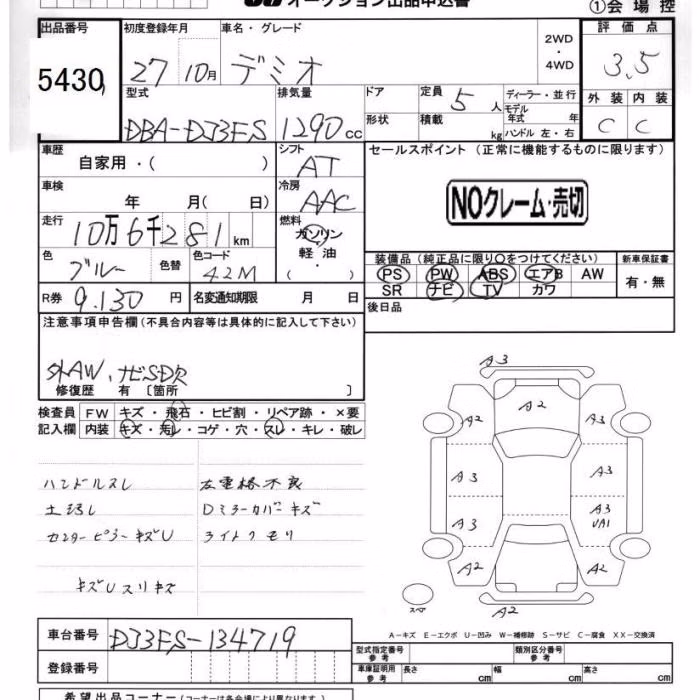 オークション出品申込書
①会場控
出品番号
初度登録年月
車名・グレード
2WD
・
4WD
評価点
5430
27 10月
デミオ
3.5
型式
排気量
ドア
定員
5人
ディーラー・並行
外装
内装
DBA-DJ3FS
1290cc
形状
積載
kg
モデル年式
年
ハンドル 左・右
C
C
車歴
自家用・(
)
シフト
AT
セールスポイント (正常に機能するものに限ります)
車検
年
月(
日)
冷房
AAC
NOクレーム・売切
走行
10万6千281km
燃料
ガソリン
・
軽油
・
色
ブルー
色替
色コード
42M
装備品 (純正品に限り○をつけてください)
新車保証書
PS
PW
ABS
エアB
AW
有・無
SR
ナビ
TV
カワ
R券
9.130円
名変通知期限
月
日
後日品
注意事項申告欄 (不具合内容等は具体的に記入して下さい)
外AW、ナビSD欠
修復歴 有 〔箇所
〕
検査員
記入欄
FW
キズ・飛石・ヒビ割・リペア跡・×要
内装
キズ・汚レ・コゲ・穴・スレ・キレ・破レ
ハンドルスレ
左電格不良
土汚レ
Dミラーカバーキズ
センターピラーキズU
ライトクモリ
キズUスリキズ
A3
A2
A2
A2
A3
A3
A3
A3
UA1
A2
A2
A2
スペア
A-キズ E-エクボ U-凹み W-補修跡 S-サビ C-腐食 XX-交換済
車台番号
DJ3FS-134719
型式指定番号
参考
類別区分番号
参考
登録番号
車庫証明用
参考
長さ
cm
幅
cm
高さ
cm
希望出品コーナー (コーナーは各会場により異なります)